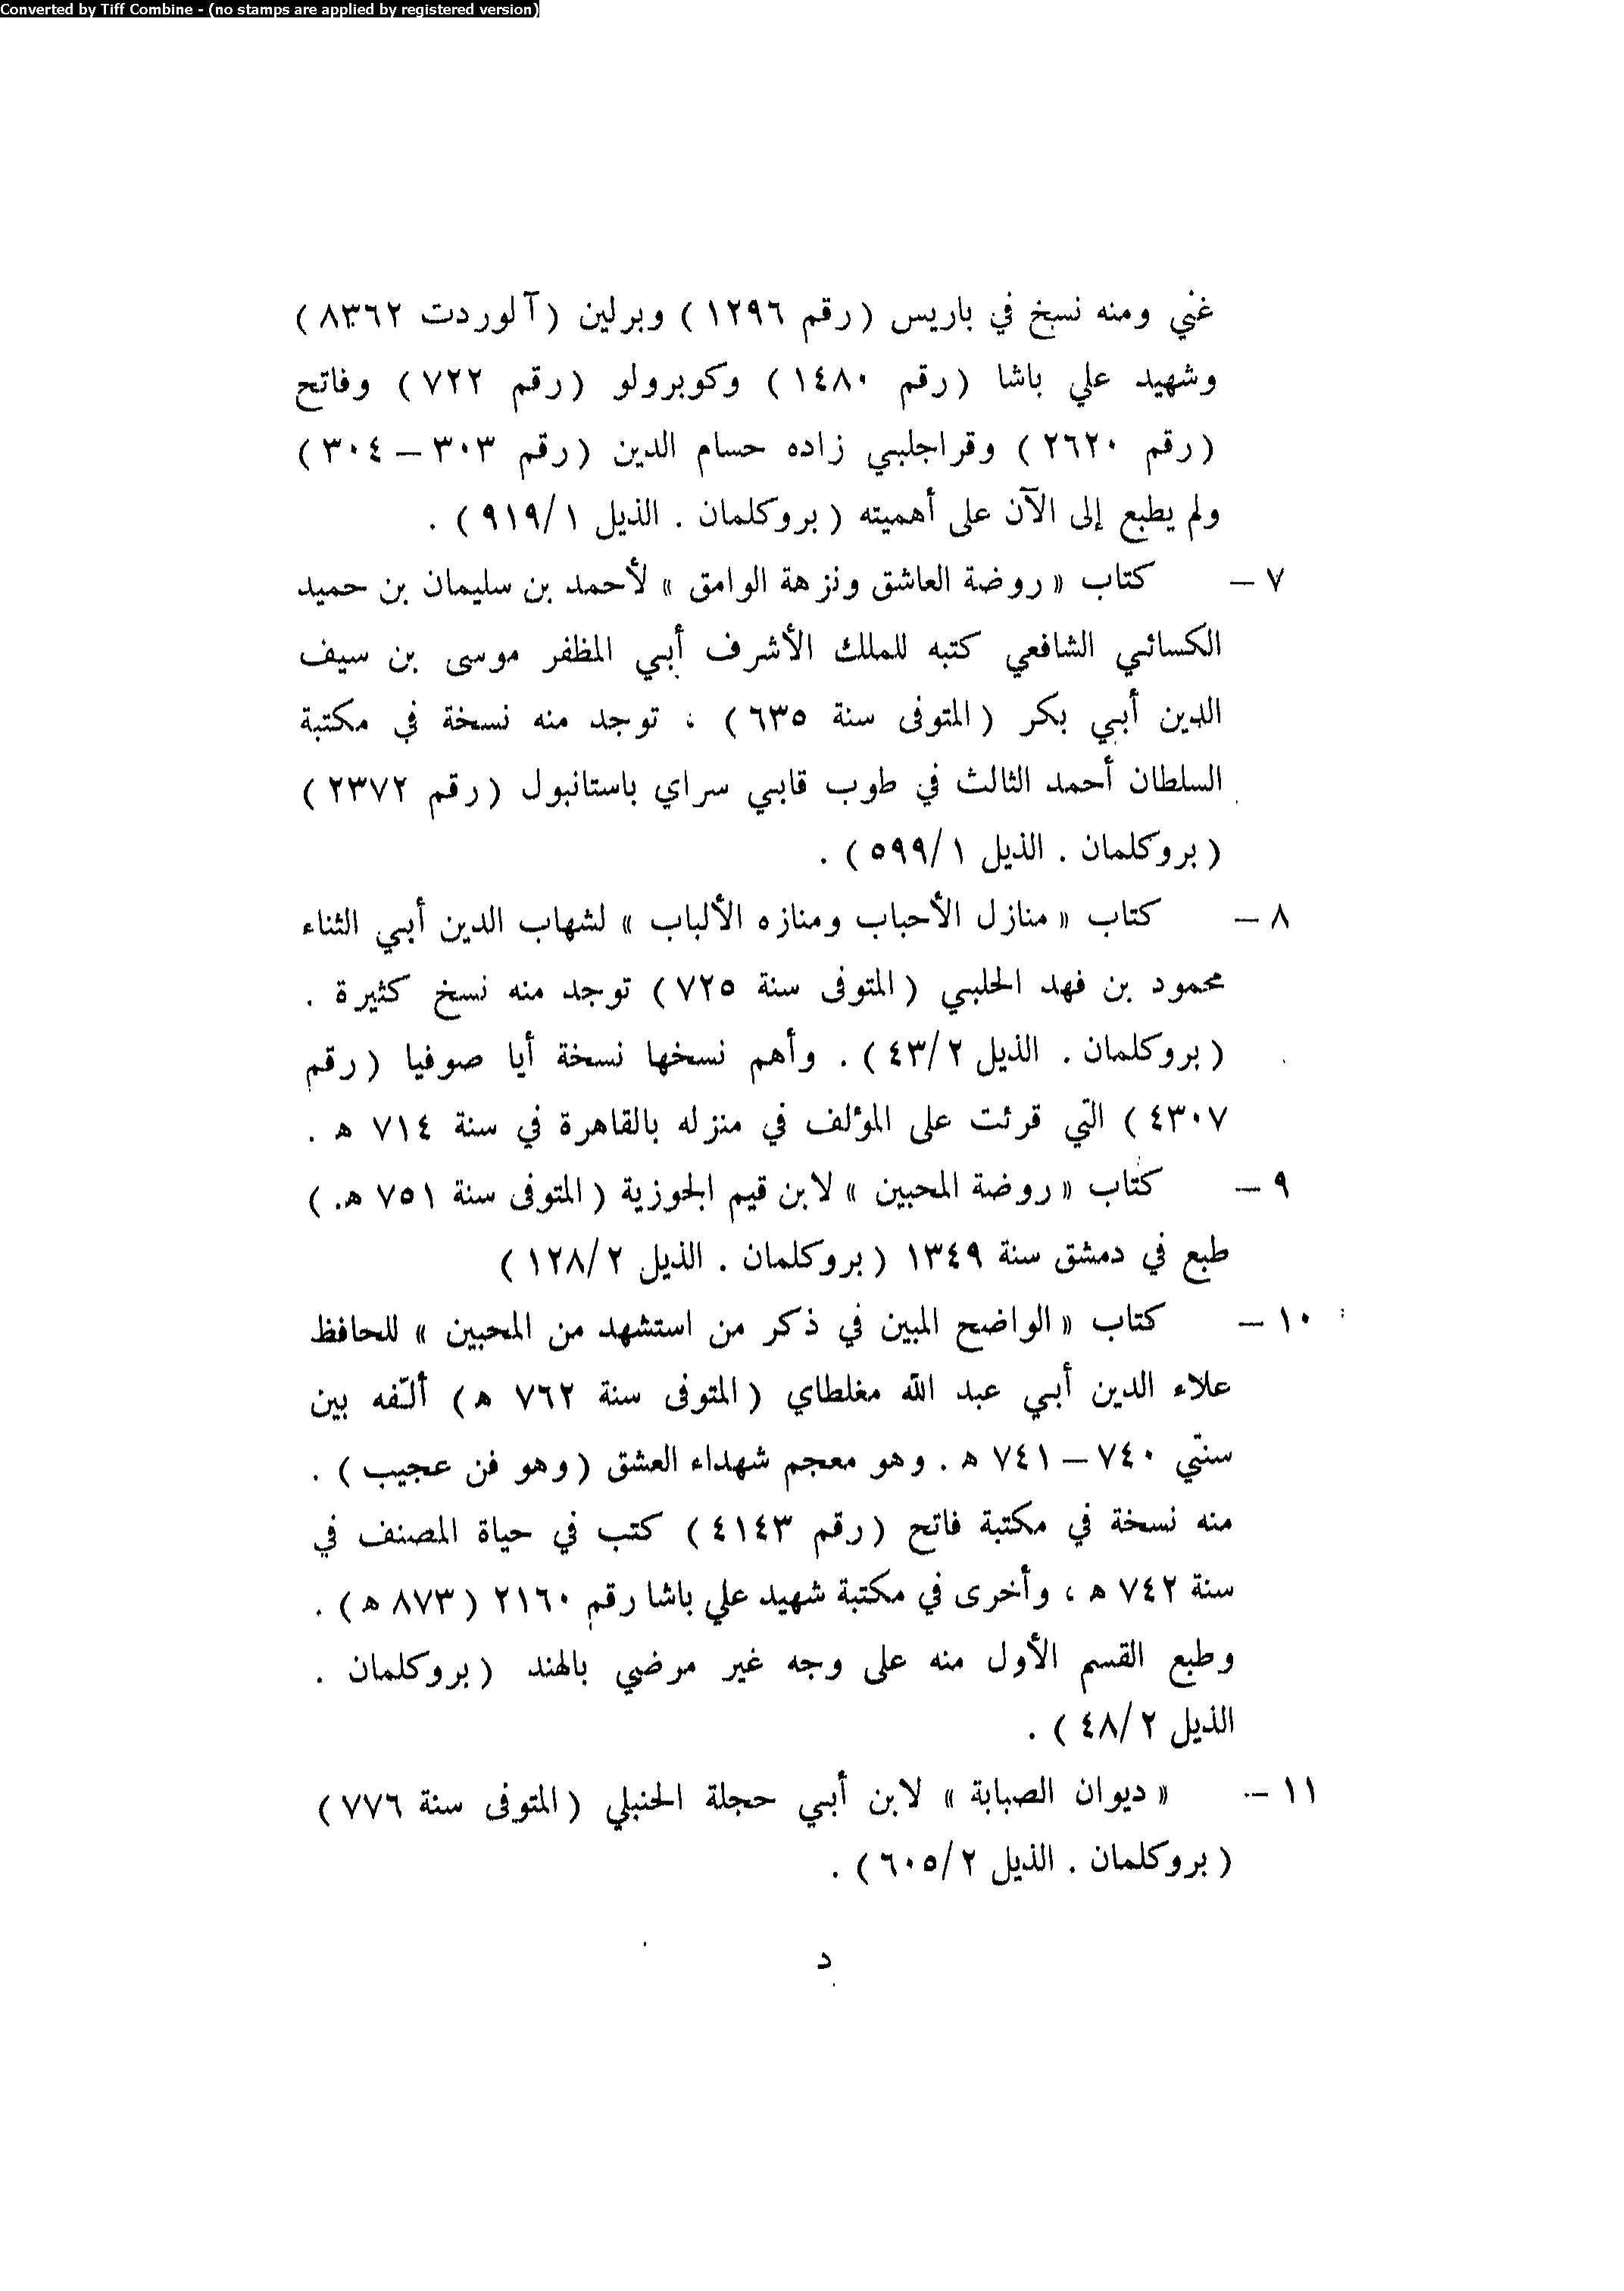 Converted by Tiff Combine - (no stamps are applied by registered version)
غني ومنه نسخ في باريس (رقم ١٢٩٦) وبرلين (آلوردت ٨٣٦٢)
وشهيد علي باشا (رقم ١٤٨٠) وكوبرولو (رقم ٧٢٢) وفاتح
(رقم ٢٦٢٠) وقراجلبي زاده حسام الدين (رقم ٣٠٣ – ٣٠٤)
ولم يطبع إلى الآن على أهميته (بروكلمان . الذيل ٩١٩/١) .
٧ – كتاب « روضة العاشق ونزهة الوامق » لأحمد بن سليمان بن حميد
الكسائي الشافعي كتبه للملك الأشرف أبي المظفر موسى بن سيف
الدين أبي بكر (المتوفى سنة ٦٣٥) ، توجد منه نسخة في مكتبة
السلطان أحمد الثالث في طوب قابي سراي باستانبول (رقم ٢٣٧٢)
(بروكلمان . الذيل ٥٩٩/١) .
٨ – كتاب « منازل الأحباب ومنازه الألباب » لشهاب الدين أبي الثناء
محمود بن فهد الحلبي (المتوفى سنة ٧٢٥) توجد منه نسخ كثيرة .
(بروكلمان . الذيل ٤٣/٢) . وأهم نسخها نسخة أيا صوفيا (رقم
٤٣٠٧) التي قرئت على المؤلف في منزله بالقاهرة في سنة ٧١٤ ه .
٩ – كتاب « روضة المحبين » لابن قيم الجوزية (المتوفى سنة ٧٥١ ه.)
طبع في دمشق سنة ١٣٤٩ (بروكلمان . الذيل ١٢٨/٢)
١٠ – كتاب « الواضح المبين في ذكر من استشهد من المحبين » للحافظ
علاء الدين أبي عبد الله مغلطاي (المتوفى سنة ٧٦٢ ه) ألّفه بين
سنتي ٧٤٠ – ٧٤١ ه . وهو معجم شهداء العشق (وهو فن عجيب) .
منه نسخة في مكتبة فاتح (رقم ٤١٤٣) كتب في حياة المصنف في
سنة ٧٤٢ ه ، وأخرى في مكتبة شهيد علي باشا رقم ٢١٦٠ (٨٧٣ ه) .
وطبع القسم الأول منه على وجه غير مرضي بالهند (بروكلمان .
الذيل ٤٨/٢) .
١١ – « ديوان الصبابة » لابن أبي حجلة الحنبلي (المتوفى سنة ٧٧٦)
(بروكلمان . الذيل ٦٠٥/٢) .
د